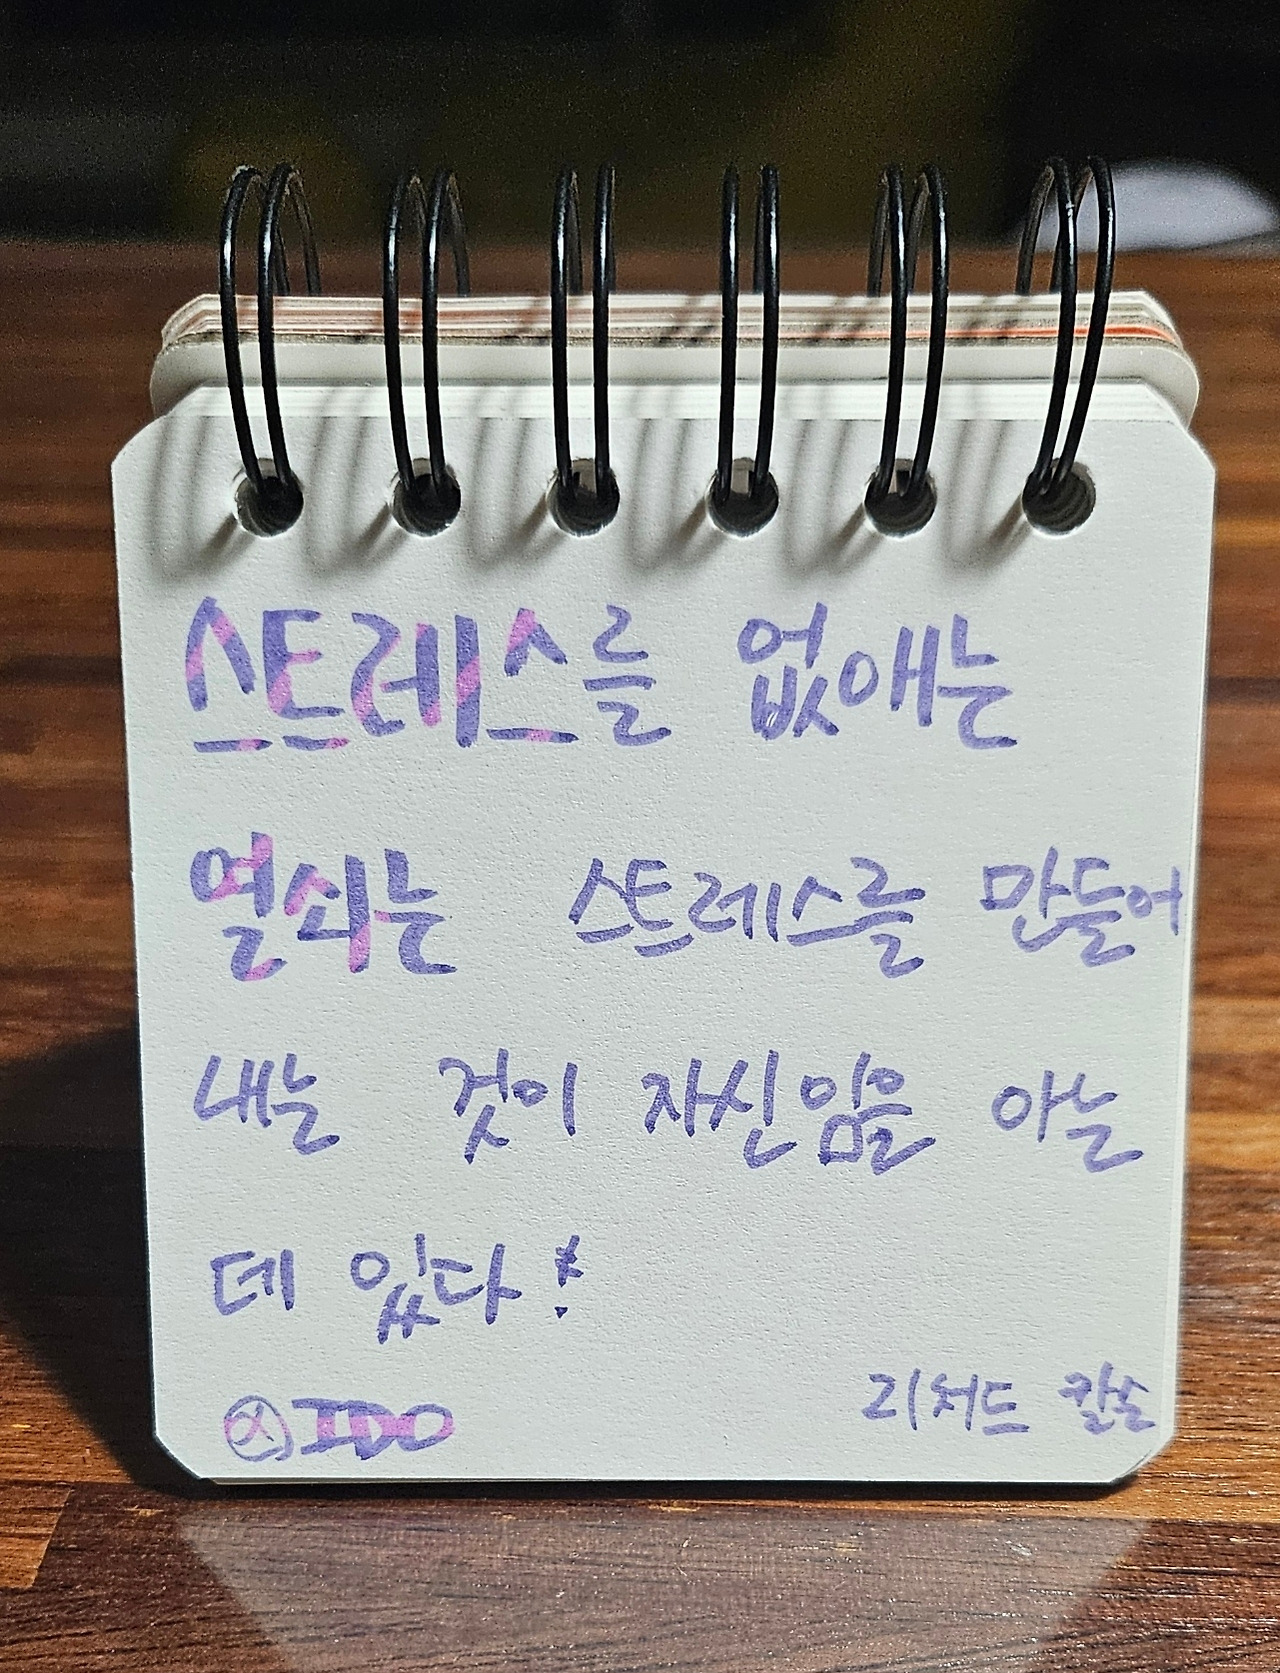 스트레스를 없애는
열쇠는 스트레스를 만들어
내는 것이 자신임을 아는
데 있다!
IDO
리처드 칼슨